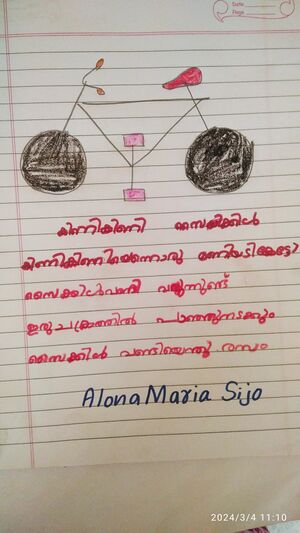 Date
Page
കിണികിണി സൈക്കിൾ
കിണികിണിയെന്നൊരു മണിയടികേട്ടോ
സൈക്കിളുവണ്ടി വരുന്നുണ്ട്
ഇരുചക്രത്തിൽ പാഞ്ഞുനടക്കും
സൈക്കിൾ വണ്ടിയെന്തു രസം
Alona Maria Sijo
2024/3/4 11:10